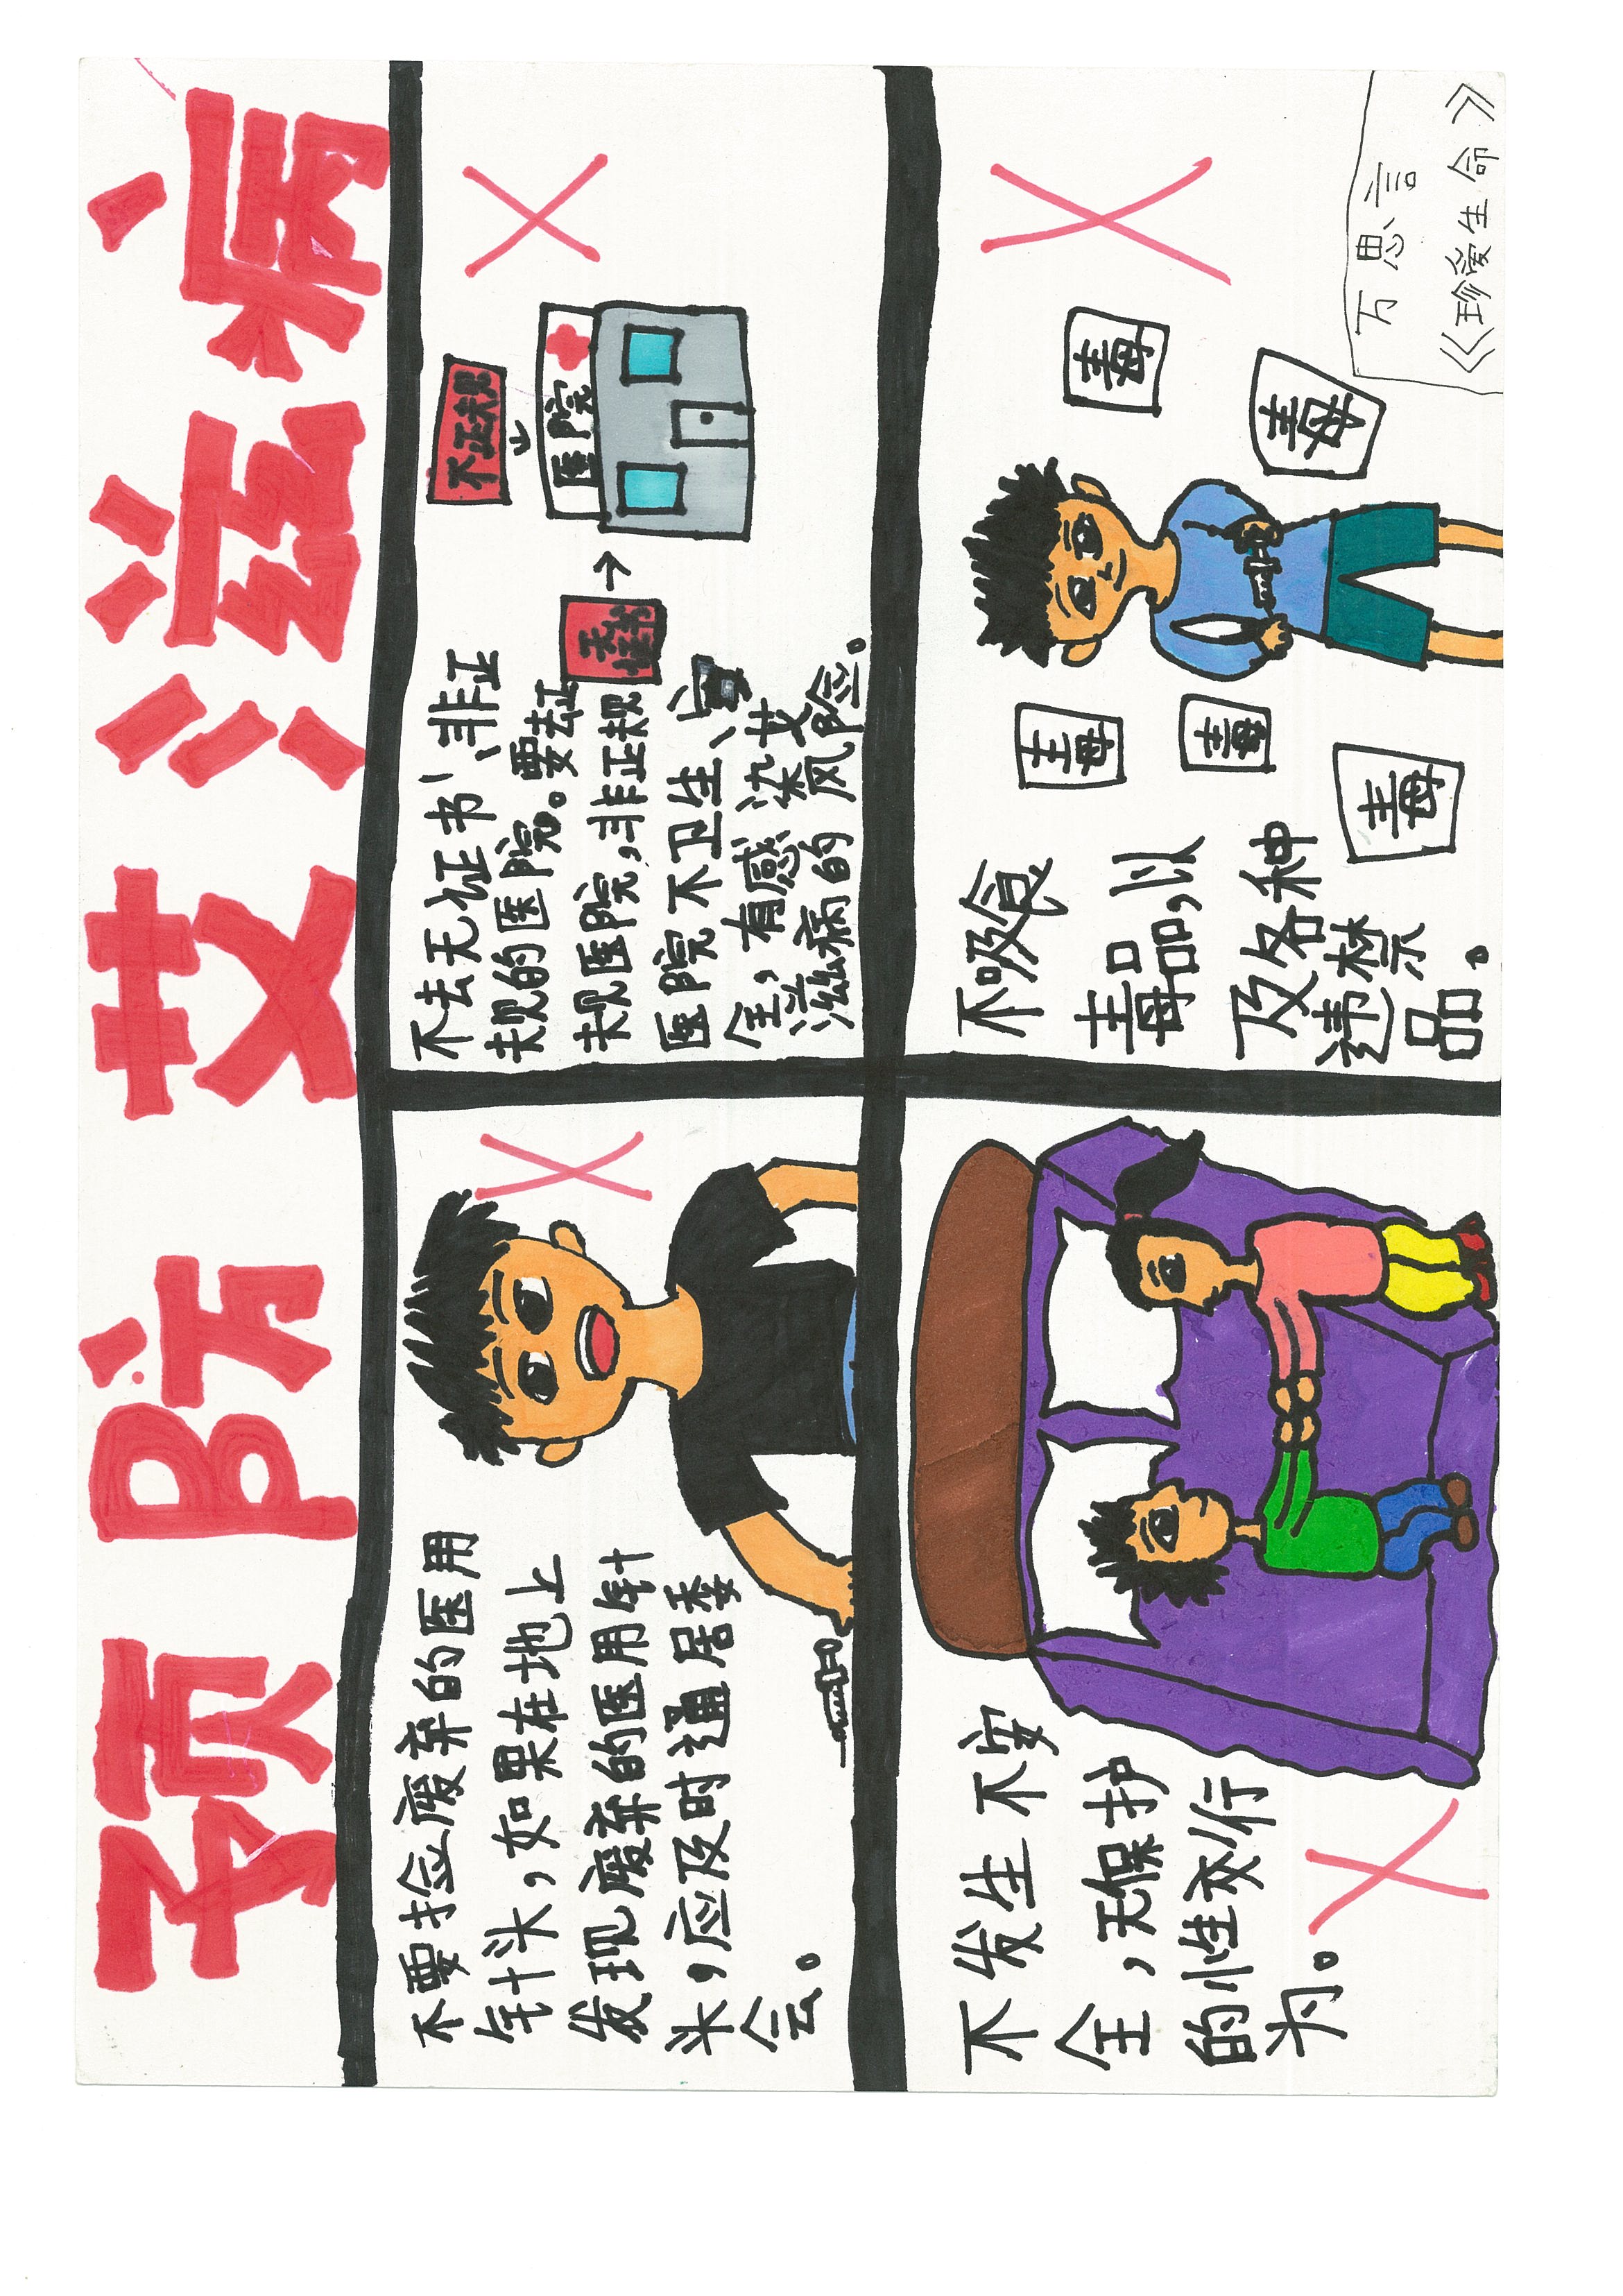 预防艾滋病
不要捡废弃的医用
针头，如果在地上
发现废弃的医用针
头，应及时通居委
会。
不去无证书、非正
规的医院。要去正
规医院，非正规
医院不卫生、
全，有感染艾
滋病的风险。
不正规
医院
无证书
不发生不安
全，无保护
的性交行
为。
不吸食
毒品，以
及各种
违禁
品。
毒
毒
毒
毒
毒
万思言
《珍爱生命》